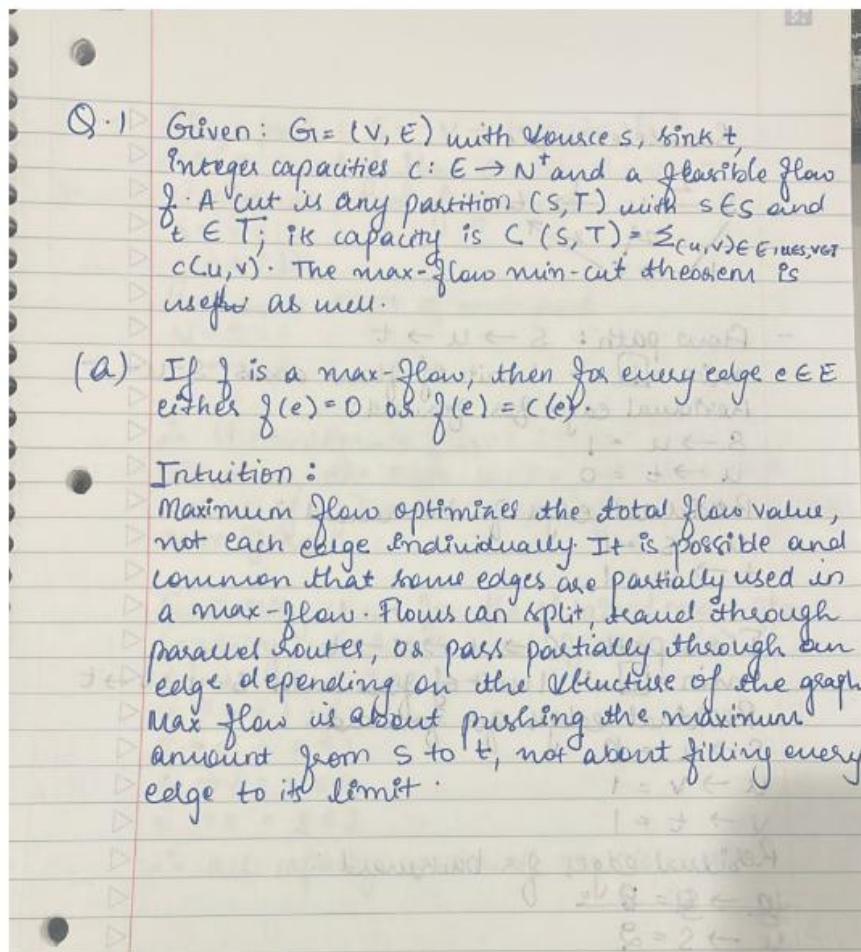 Q.1 Given: G = (V, E) with source s, sink t,
integer capacities c: E → N⁺ and a feasible flow
f. A cut is any partition (S, T) with s ∈ S and
t ∈ T; its capacity is C (S, T) = Σ(u,v) ∈ E, u∈S, v∈T
c(u,v). The max-flow min-cut theorem is
useful as well.
(a) If f is a max-flow, then for every edge e ∈ E
either f(e) = 0 or f(e) = c(e).
Intuition:
Maximum flow optimizes the total flow value,
not each edge individually. It is possible and
common that some edges are partially used in
a max-flow. Flows can split, travel through
parallel routes, or pass partially through an
edge depending on the structure of the graph
Max flow is about pushing the maximum
amount from s to t, not about filling every
edge to its limit.